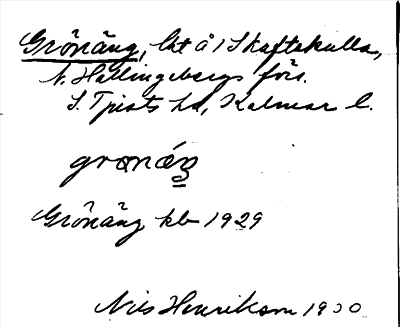 Grönäng, lht å 1 Skaftekulla,
N. Hallingebergs förs.
S. Tjusts hd, Kalmar l.
grønǽŋ
Grönäng kb 1929
Nils Henrikson 1930